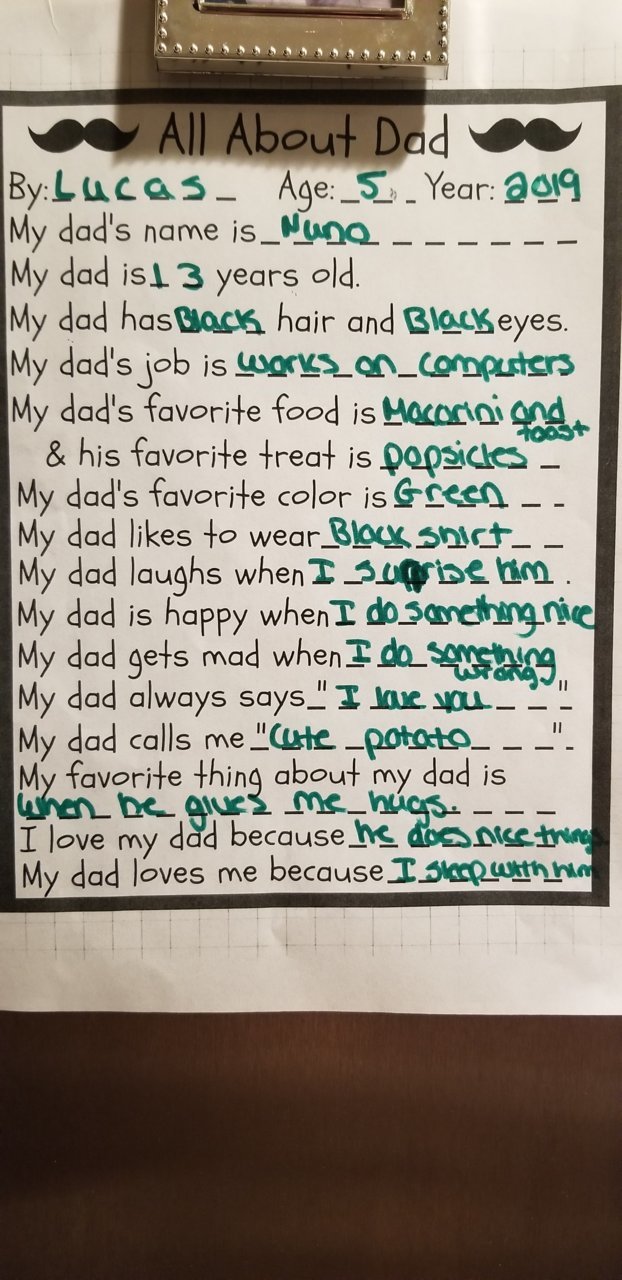 All About Dad
By: Lucas Age: 5 Year: 2019
My dad's name is Nuno
My dad is 13 years old.
My dad has Black hair and Black eyes.
My dad's job is works on computers
My dad's favorite food is Macarini and
toast
& his favorite treat is popsicles
My dad's favorite color is Green
My dad likes to wear Black shirt
My dad laughs when I suprise him .
My dad is happy when I do something nice
My dad gets mad when I do something
wrong
My dad always says " I love you "
My dad calls me "Cute potato ".
My favorite thing about my dad is
when he gives me hugs.
I love my dad because he does nice things
My dad loves me because I sleep with him